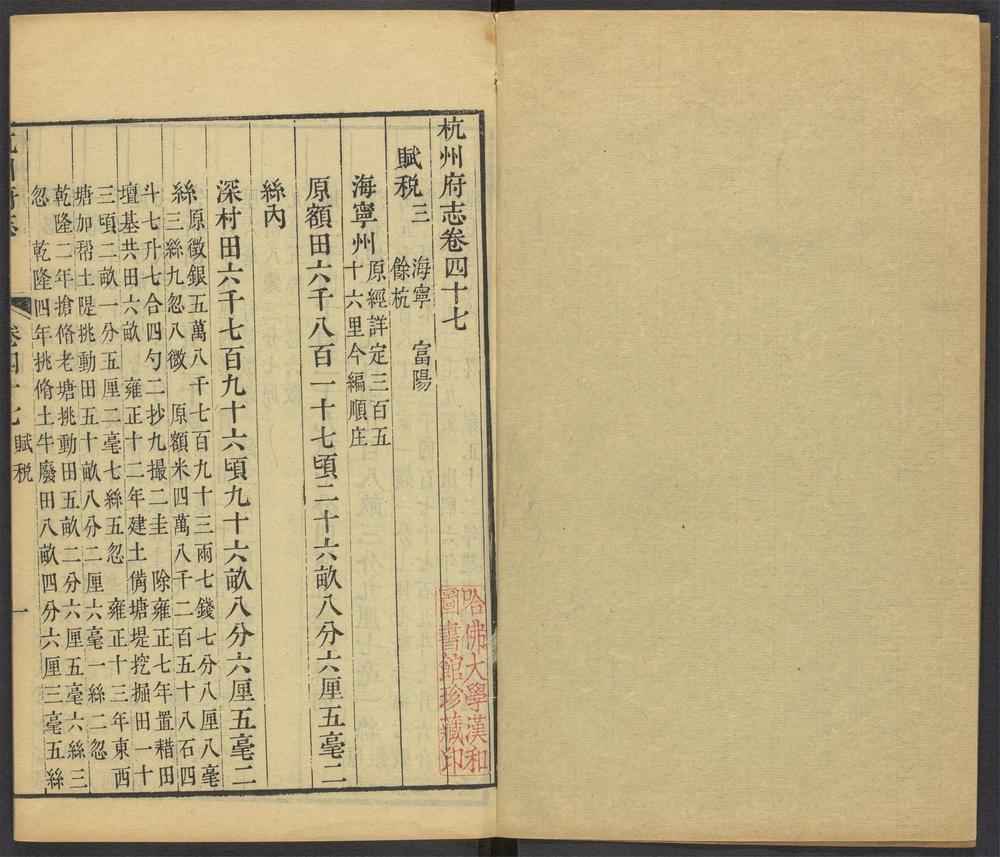 杭州府志卷四十七
賦税三
海寧 富陽
餘杭
海寧州
原經詳定三百五
十六里今編順庄
原額田六千八百一十七頃二十六畝八分六厘五毫二
絲內
深村田六千七百九十六頃九十六畝八分六厘五毫二
絲
原徴銀五萬八千七百九十三兩七錢七分八厘八毫
三絲九忽八微 原額米四萬八千二百五十八石四
斗七升七合四勺二抄九撮二圭 除雍正七年置耤田
壇基共田六畝 雍正十二年建土備塘堤挖掘田一十
三頃二畝一分五厘二毫七絲五忽 雍正十三年東西
塘加帮土隄挑動田五十畝八分二厘六毫一絲二忽
乾隆二年搶脩老塘挑動田五畝二分六厘五毫六絲三
忽 乾隆四年挑脩土牛廢田八畝四分六厘三毫五絲
卷四十七
賦税
一
哈佛大學漢和
圖書館珍藏印